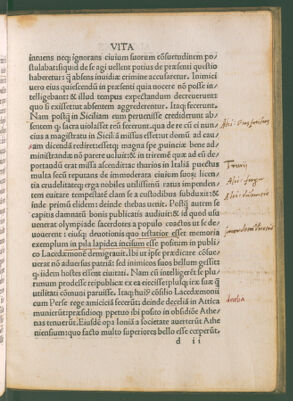 VITA
intuens neq; ignorans ciuium suorum cõsuetudinem pos-
tulabat: siquid de se agi uellent potius de præsenti quæstio
haberetur: q̃ absens inuidiæ crimine accusaretur. Inimici
uero eius quiescendũ in præsenti quia nocere nõ posse in-
telligebant & illud tempus expectandum decreuerunt
quo is exisset ut absentem aggrederentur. Itaq; fecerunt.
Nam postq̃ in Siciliam eum peruenisse crediderunt ab-
sentem q; sacra uiolasset reũ
eius a magistratu in Siciliã missus esset ut domũ ad cau-
sam dicendã rediret essetq; magna spe puinciæ bene ad-
ministrandæ nõ parere uoluit & in trieremẽ quæ ad eũ de-
portandũ erat missa ascendit: hac thurios in Italiã puectus
multa secũ reputans de immoderata ciuium suorũ licen-
tia crudelitateq; erga nobiles utilissimũ ratus impenden-
tem euitare tempestatẽ clam se a custodibus subduxit: &
inde primum elidem: deinde thebas uenit. Postq̃ autem se
capitis damnatũ bonis publicatis audiuit: & id quod usu
uenerat olympiadæ sacerdotes a populo coactos ut se de-
uouerent: eiusq; deuotionis quo testatior esset memoria
exemplum in pila lapidea incisum esse positum in publi-
co Lacedæmonẽ demigrauit. Ibi ut ipse prædicare cõsue-
uerat nõ aduersus patriã: sed inimicos suos bellum gessit:
q; iidem hostes essent ciuitati. Nam cũ intelligerẽt se plu-
rimum prodesse reipublicæ ex ea eiecisse: plusq; iræ suæ q̃
utilitati cõmuni paruisse. Itaq; huiꝰ cõsilio Lacedæmonii
cum Perse rege amiciciã fecerũt: deinde deceliã in Attica
munierũt: præsidioq; ppetuo ibi posito in obsidiõe Athe-
nas tenuerũt. Eiusdẽ opa Ioniã a societate auerterũt Athe
niensium: quo facto multo superiores bello esse cœperũt.
d ii